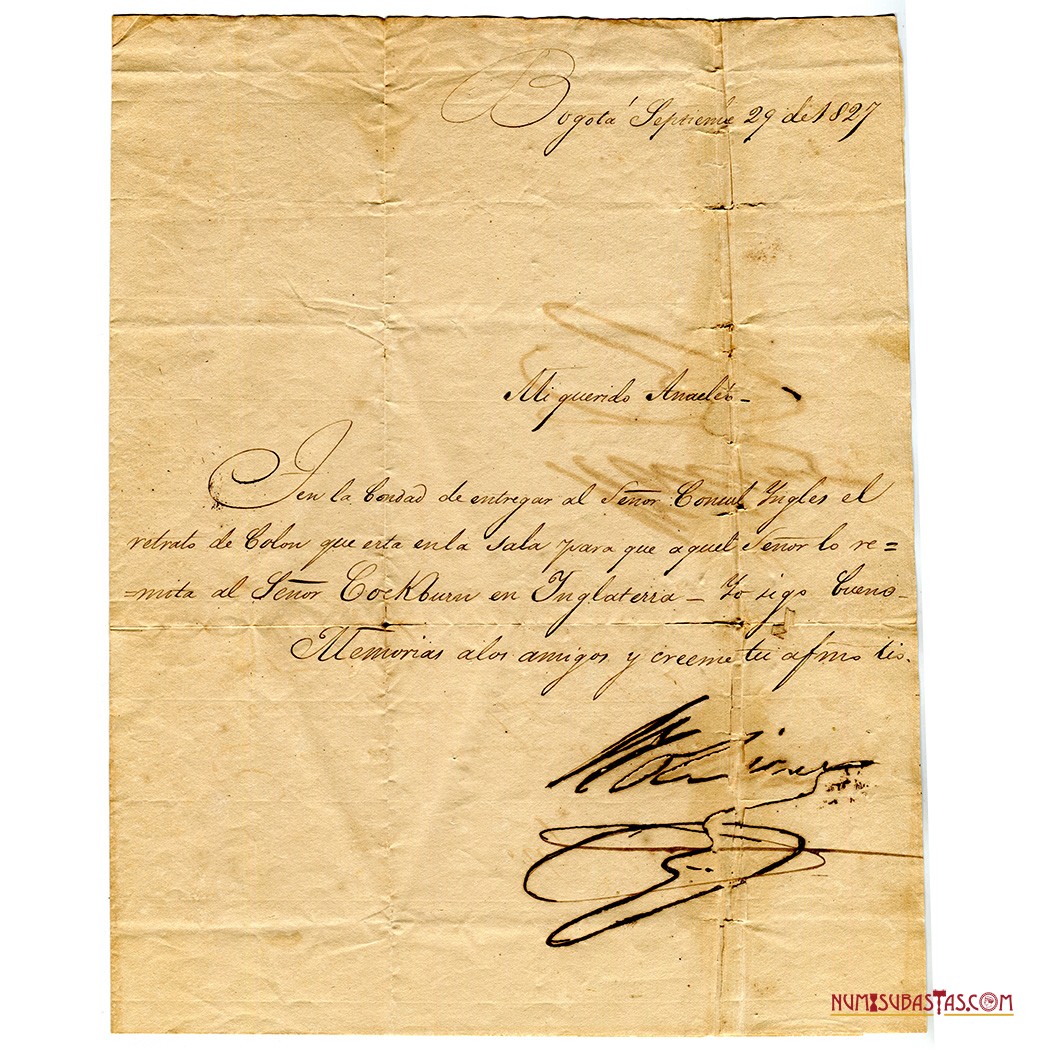 Bogotá Septiembe 29 de 1827
Mi querido Anacleto_
Ten la bondad de entregar al Señor Consul Yngles el
retrato de Colon que esta en la sala para que aquel Señor lo re=
=mita al Señor Cockburn en Inglaterra_ Yo sigo bueno_
Memorias a los amigos y creeme tu afmo tio.
Bolivar
NUMISUBASTAS.COM